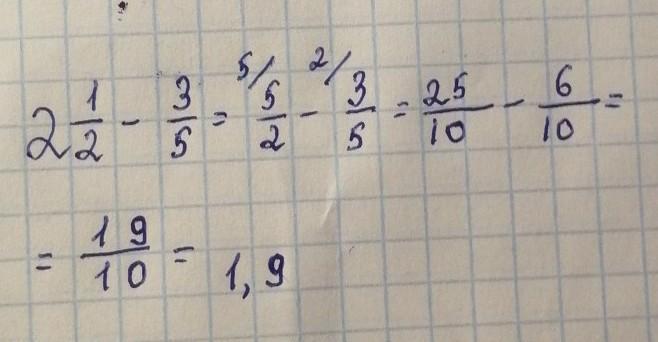 2 1/2 - 3/5 = 5/ 5/2 - 2/ 3/5 = 25/10 - 6/10 =
= 19/10 = 1,9